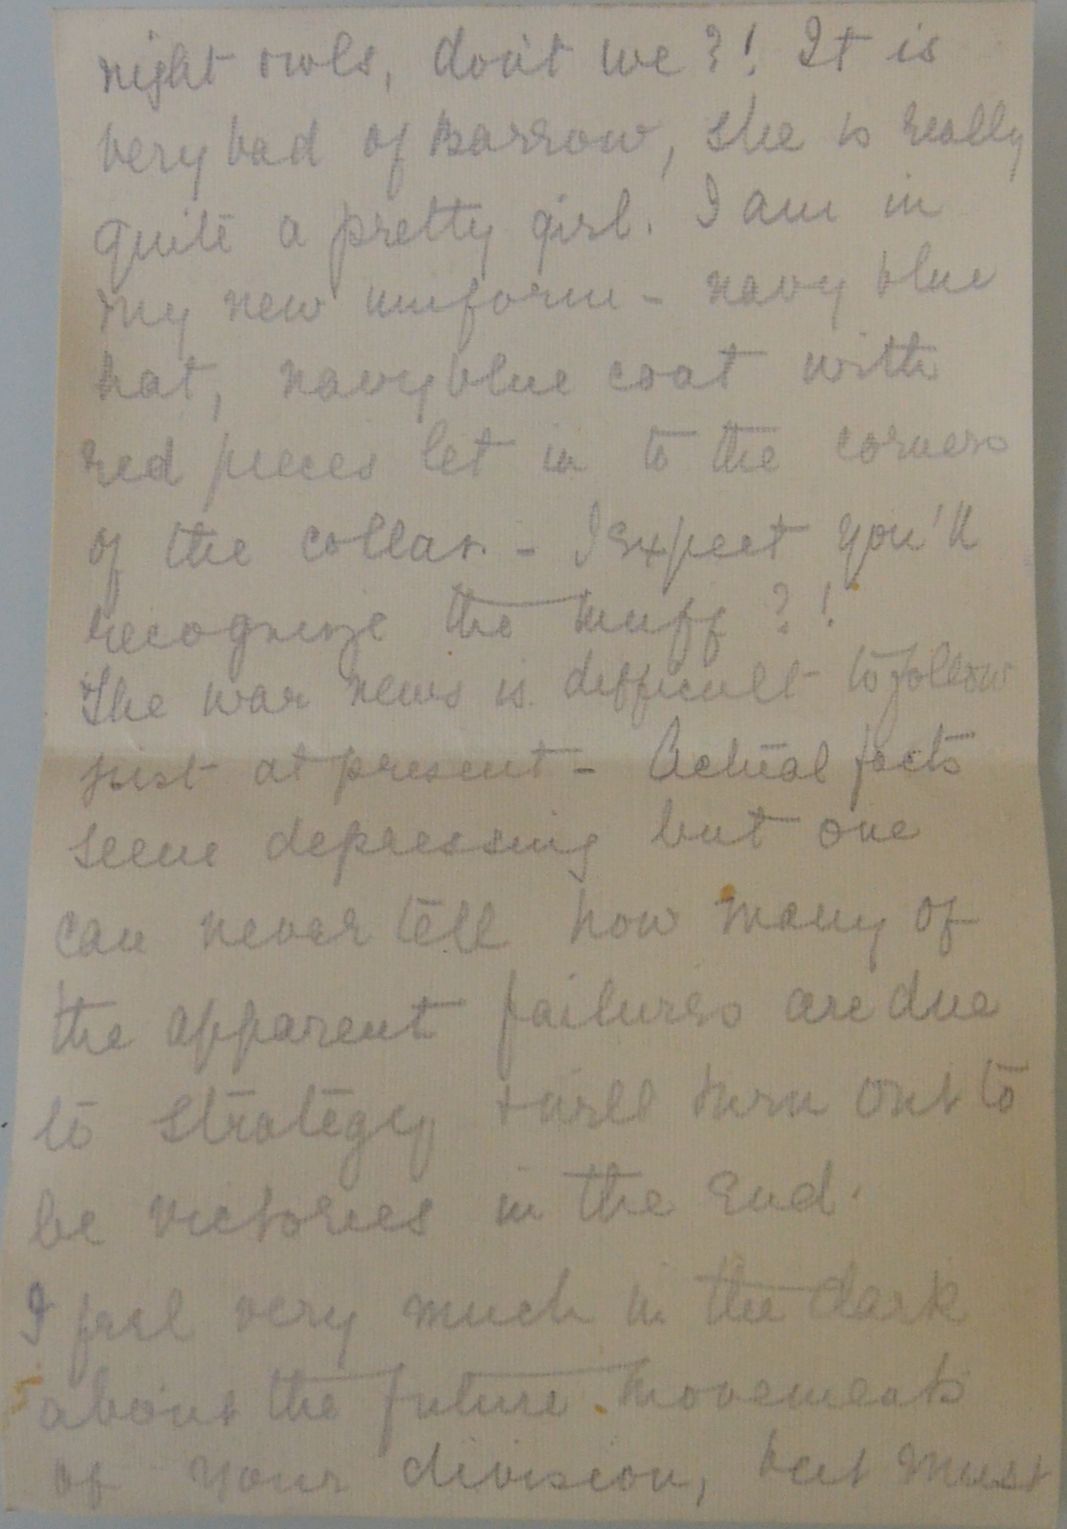 night owls, don't we?! It is
very bad of Barrow, she is really
quite a pretty girl. I am in
my new uniform - navy blue
hat, navy blue coat with
red pieces let in to the corners
of the collar. - I expect you'll
recognize the muff?!
The war news is difficult to follow
just at present - Actual facts
seem depressing but one
can never tell how many of
the apparent failures are due
to strategy & will turn out to
be victories in the end.
I feel very much in the dark
about the future movements
of your division, but must